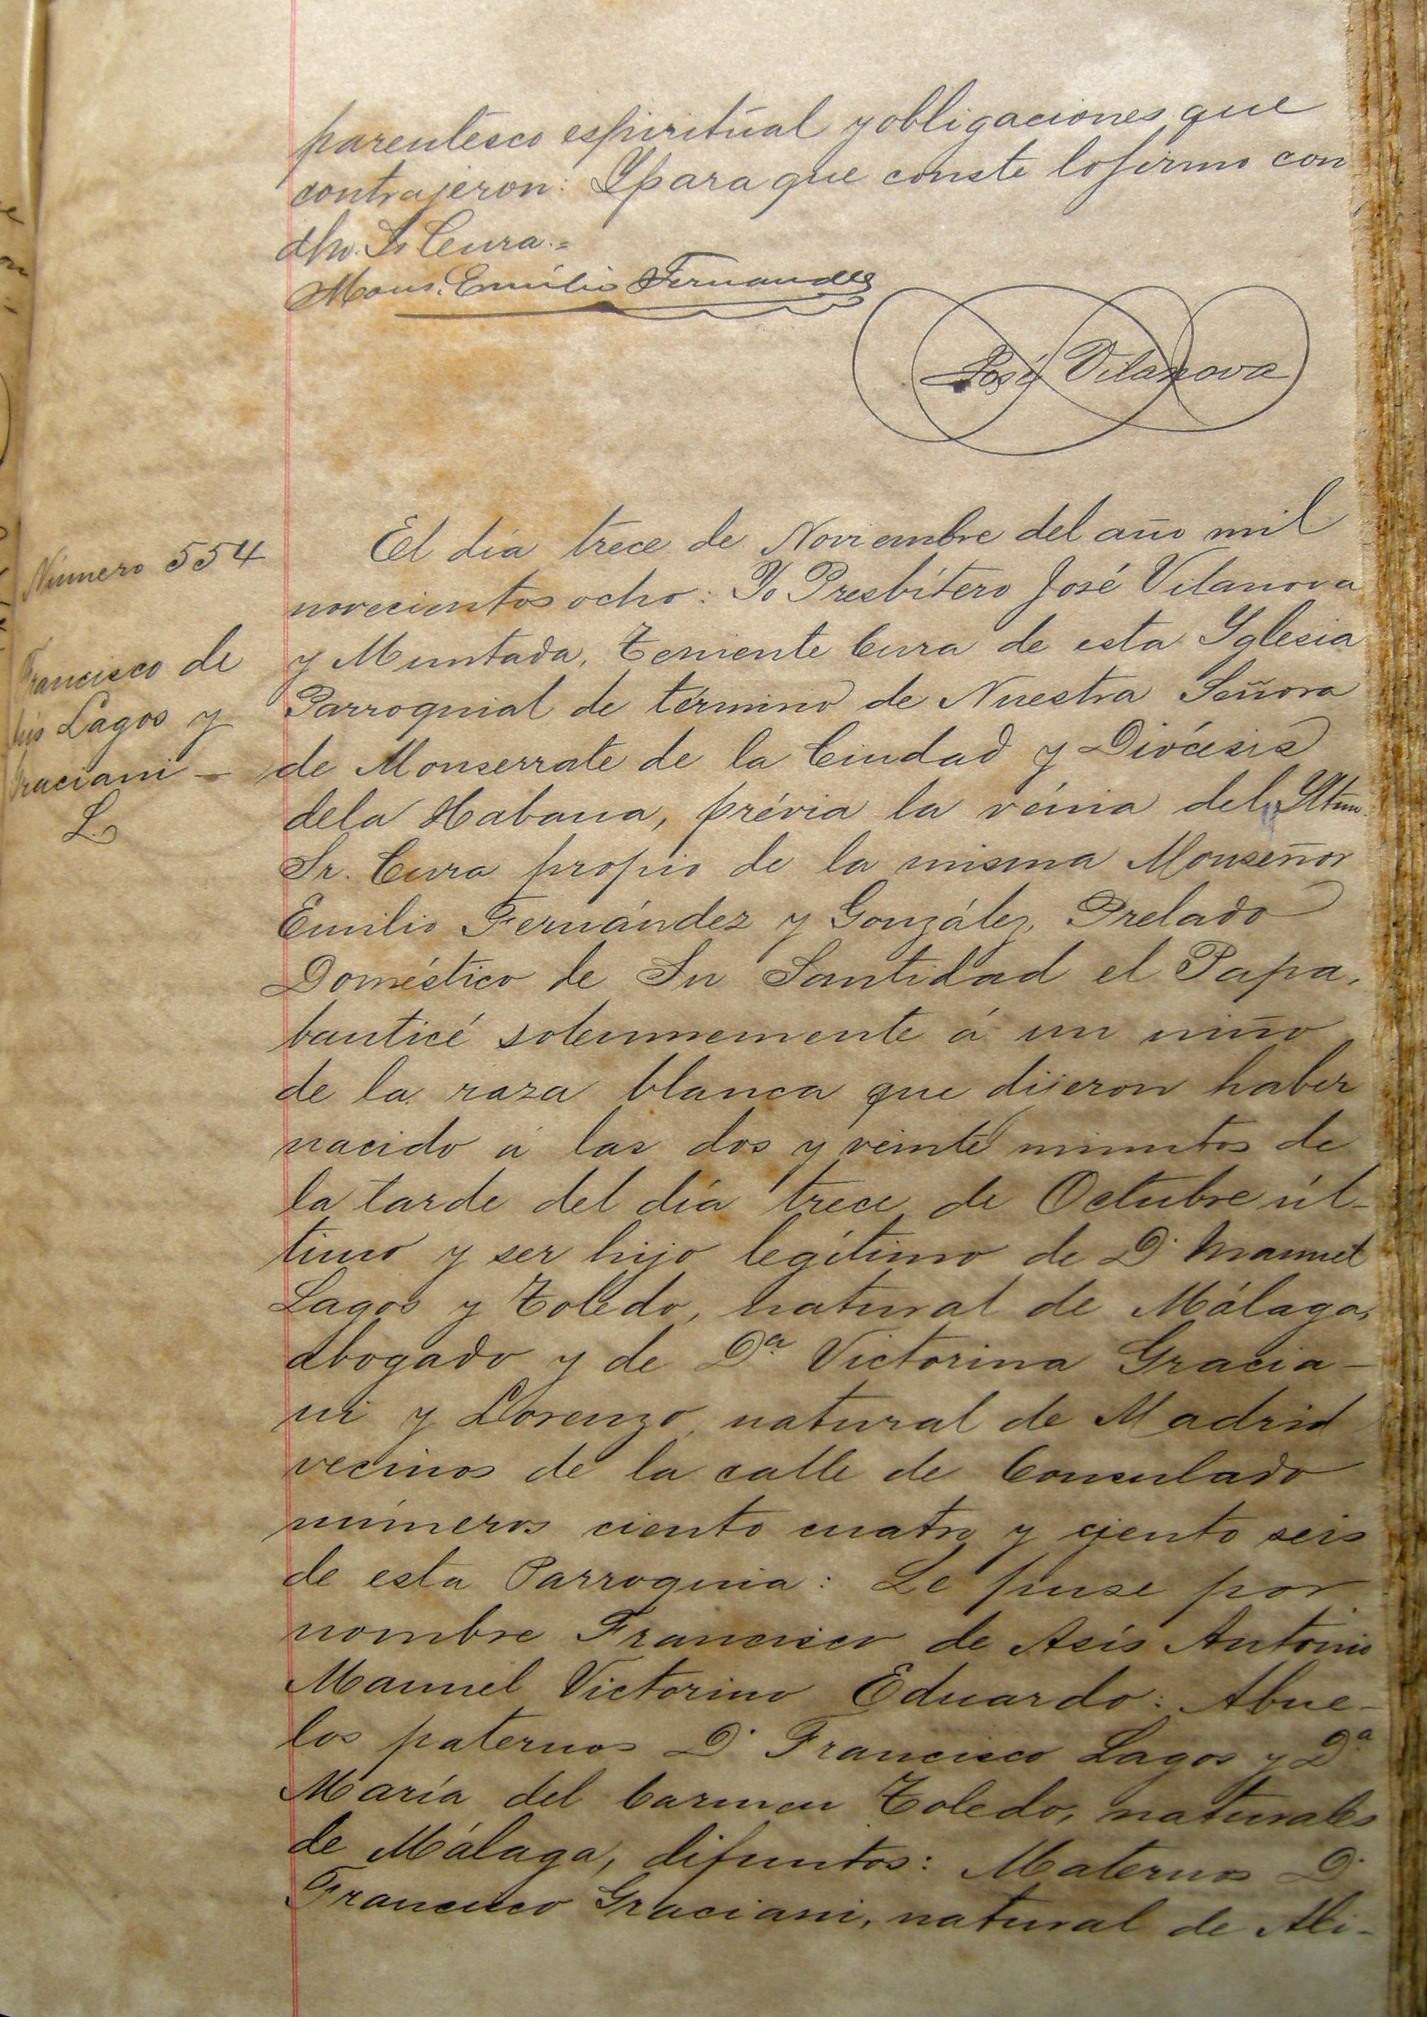 parentesco espiritual y obligaciones que
contrajeron: Y para que conste lo firmo con
dho. Sr Cura.=
Mons. Emilio Fernandez
José Vilanova
Número 554
Francisco de
Asis Lagos y
Graciani —
L
El día trece de Noviembre del año mil
novecientos ocho: Yo Presbítero José Vilanova
y Muntada, Teniente Cura de esta Yglesia
Parroquial de término de Nuestra Señora
de Monserrate de la Ciudad y Diócesis
dela Habana, prévia la vénia del Yltmo.
Sr. Cura propio de la misma Monseñor
Emilio Fernández y González, Prelado
Doméstico de Su Santidad el Papa,
bauticé solemnemente á un niño
de la raza blanca que dijeron haber
nacido á las dos y veinte minutos de
la tarde del día trece de Octubre úl-
timo y ser hijo legítimo de D. Manuel
Lagos y Toledo, natural de Málaga,
abogado y de Dª Victorina Gracia-
ni y Lorenzo, natural de Madrid
vecinos de la calle de Consulado
números ciento cuatro y ciento seis
de esta Parroquia: Le puse por
nombre Francisco de Asís Antonio
Manuel Victorino Eduardo: Abue-
los paternos D. Francisco Lagos y Dª
María del Carmen Toledo, naturales
de Málaga, difuntos: Maternos D.
Francisco Graciani, natural de Ali-